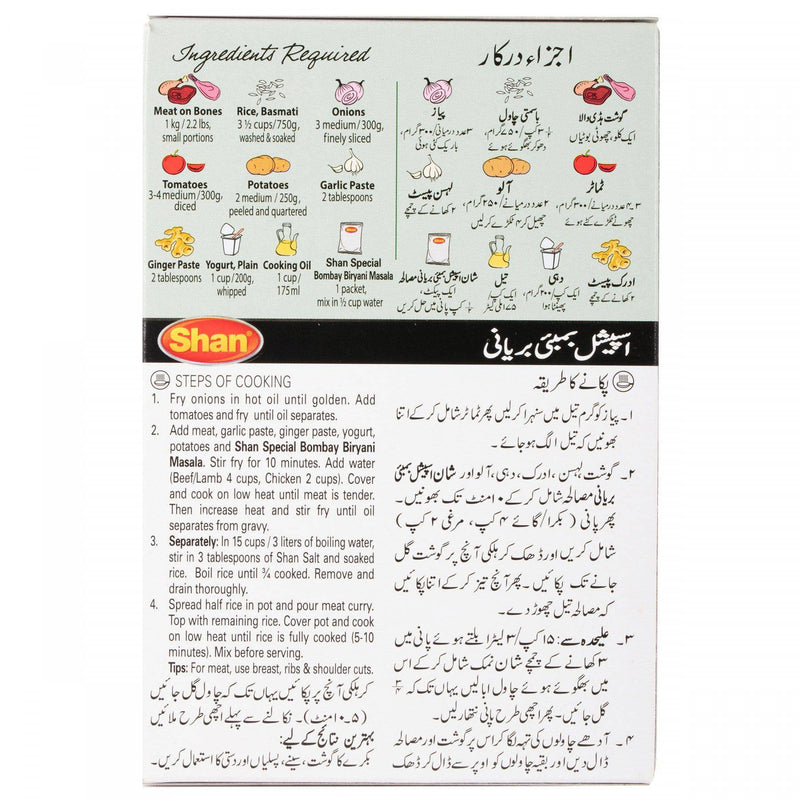 Ingredients Required
Meat on Bones
1 kg / 2.2 lbs,
small portions
Rice, Basmati
3 ½ cups/750g,
washed & soaked
Onions
3 medium/300g,
finely sliced
Tomatoes
3-4 medium/300g,
diced
Potatoes
2 medium / 250g,
peeled and quartered
Garlic Paste
2 tablespoons
Ginger Paste
2 tablespoons
Yogurt, Plain
1 cup/200g,
whipped
Cooking Oil
1 cup /
175 ml
Shan Special
Bombay Biryani Masala
1 packet,
mix in ½ cup water
اجزاء درکار
گوشت ہڈی والا
ایک کلو، چھوٹی بوٹیاں
باسمتی چاول
½ ۳ کپ/۷۵۰ گرام،
دھو کر بھگوئے ہوئے
پیاز
۳ عدد درمیانے/۳۰۰ گرام،
باریک کٹی ہوئی
ٹماٹر
۳-۴ عدد درمیانے/۳۰۰ گرام،
چھوٹے ٹکڑے کٹے ہوئے
آلو
۲ عدد درمیانے/۲۵۰ گرام،
چھیل کر ۴ ٹکڑے کر لیں
لہسن پیسٹ
۲ کھانے کے چمچے
ادرک پیسٹ
۲ کھانے کے چمچے
دہی
ایک کپ/۲۰۰ گرام،
پھینٹا ہوا
تیل
ایک کپ/
۱۷۵ ملی لیٹر
شان اسپیشل بمبئی بریانی مصالحہ
ایک پیکٹ،
½ کپ پانی میں حل کریں
Shan
اسپیشل بمبئی بریانی
STEPS OF COOKING
1. Fry onions in hot oil until golden. Add
tomatoes and fry until oil separates.
2. Add meat, garlic paste, ginger paste, yogurt,
potatoes and Shan Special Bombay Biryani
Masala. Stir fry for 10 minutes. Add water
(Beef/Lamb 4 cups, Chicken 2 cups). Cover
and cook on low heat until meat is tender.
Then increase heat and stir fry until oil
separates from gravy.
3. Separately: In 15 cups / 3 liters of boiling water,
stir in 3 tablespoons of Shan Salt and soaked
rice. Boil rice until ¾ cooked. Remove and
drain thoroughly.
4. Spread half rice in pot and pour meat curry.
Top with remaining rice. Cover pot and cook
on low heat until rice is fully cooked (5-10
minutes). Mix before serving.
Tips: For meat, use breast, ribs & shoulder cuts.
پکانے کا طریقہ
۱۔ پیاز کو گرم تیل میں سنہرا کر لیں پھر ٹماٹر شامل کر کے اتنا
بھونیں کہ تیل الگ ہو جائے۔
۲۔ گوشت، لہسن، ادرک، دہی، آلو اور شان اسپیشل بمبئی
بریانی مصالحہ شامل کر کے ۱۰ منٹ تک بھونیں۔
پھر پانی (بکرا/گائے ۴ کپ، مرغی ۲ کپ)
شامل کریں اور ڈھک کر ہلکی آنچ پر گوشت گل
جانے تک پکائیں۔ پھر آنچ تیز کر کے اتنا پکائیں
کہ مصالحہ تیل چھوڑ دے۔
۳۔ علیحدہ سے: ۱۵ کپ/۳ لیٹر ابلتے ہوئے پانی میں
۳ کھانے کے چمچے شان نمک شامل کر کے اس
میں بھگوئے ہوئے چاول ابالیں یہاں تک کہ ¾
گل جائیں۔ پھر اچھی طرح پانی نتھار لیں۔
۴۔ آدھے چاولوں کی تہہ لگا کر اس پر گوشت اور مصالحہ
ڈال دیں اور بقیہ چاولوں کو اوپر سے ڈال کر ڈھک
کر ہلکی آنچ پر پکائیں یہاں تک کہ چاول گل جائیں
(۵-۱۰ منٹ)۔ نکالنے سے پہلے اچھی طرح ملائیں
بہترین نتائج کے لیے:
بکرے کا گوشت، سینے، پسلیاں اور دستی کا استعمال کریں۔